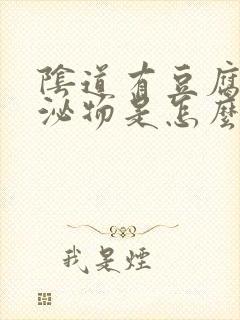 陰道有豆腐
泌物是怎麼
我是煙